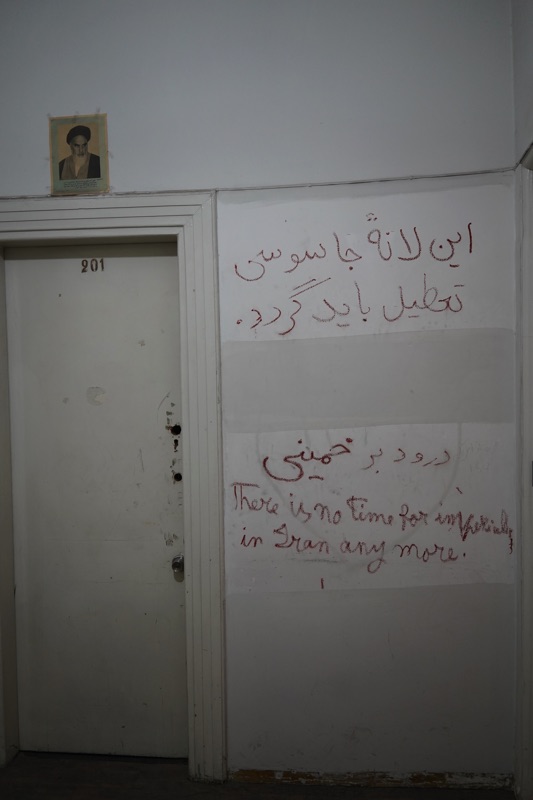 201
این لانهٔ جاسوسی
تعطیل باید گردد.
درود بر خمینی
There is no time for imperialis
in Iran any more.